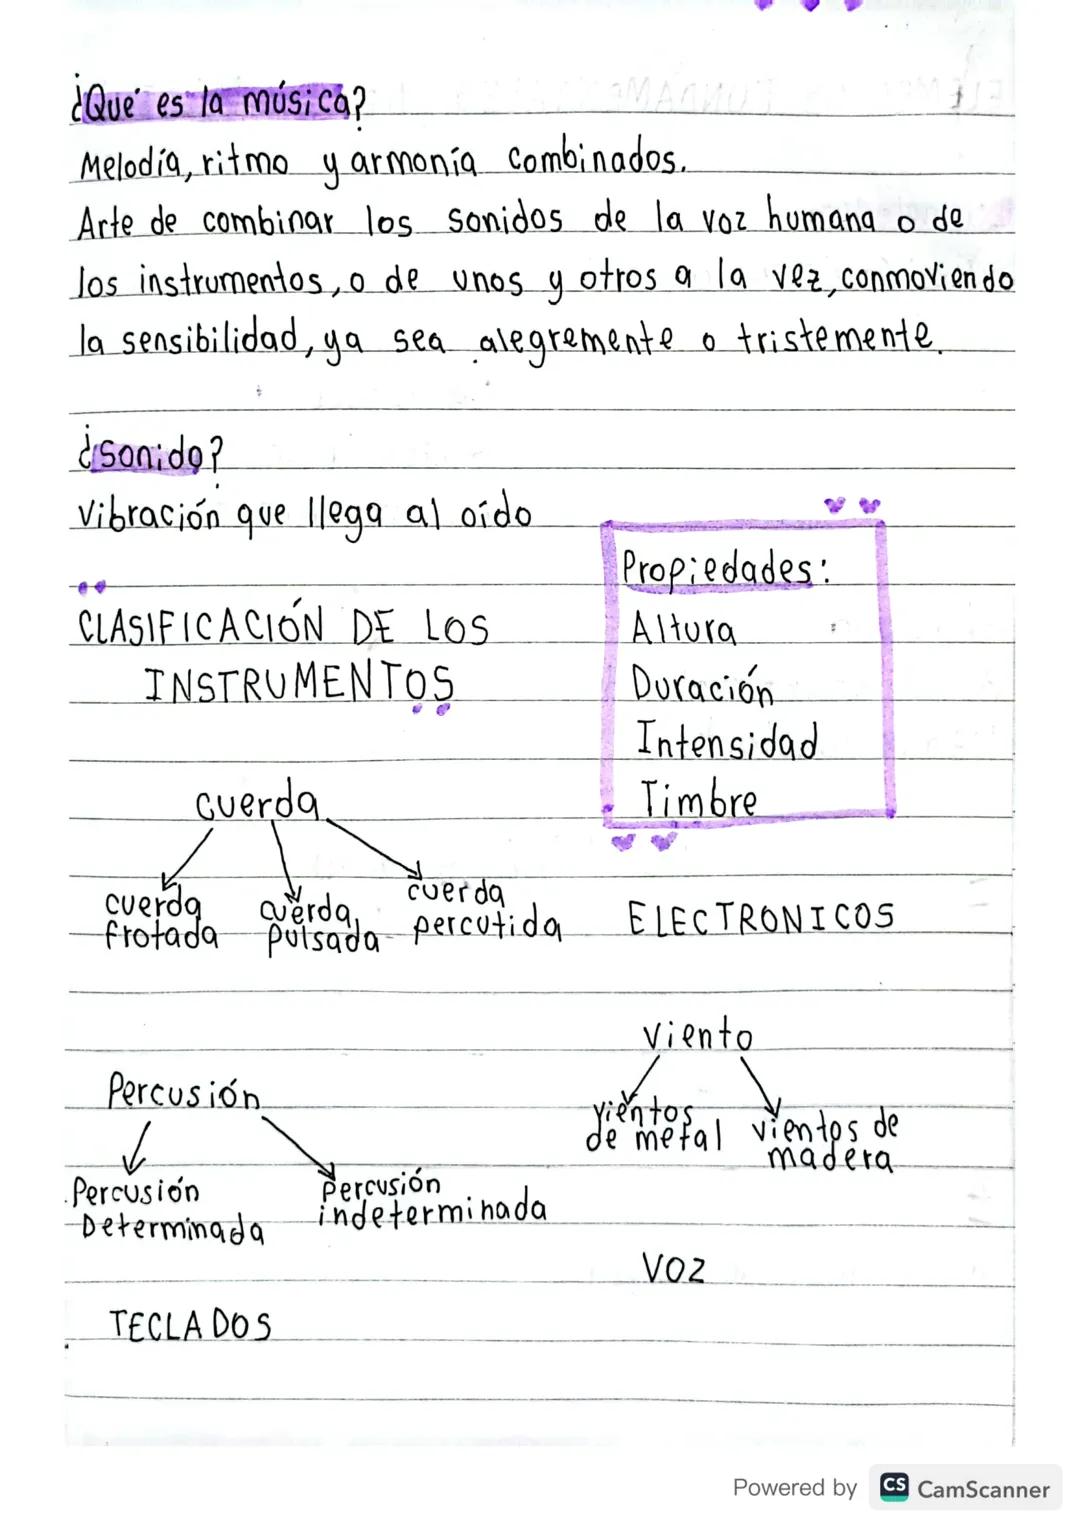 ¿Qué es la música?
Melodía, ritmo y armonía combinados.
Arte de combinar los sonidos de la voz humana o de
los instrumentos, o de unos y otros a la vez, conmoviendo
la sensibilidad, ya sea alegremente o tristemente.
¿Sonido?
Vibración que llega al oído
Propiedades:
Altura
Duración
Intensidad
Timbre
CLASIFICACIÓN DE LOS
INSTRUMENTOS
cuerda
cuerda
frotada
cuerda
pulsada
cuerda
percutida
ELECTRONICOS
viento
vientos
de metal
vientos de
madera
Percusión
Percusión
Determinada
Percusión
indeterminada
VOZ
TECLADOS
Powered by CS CamScanner